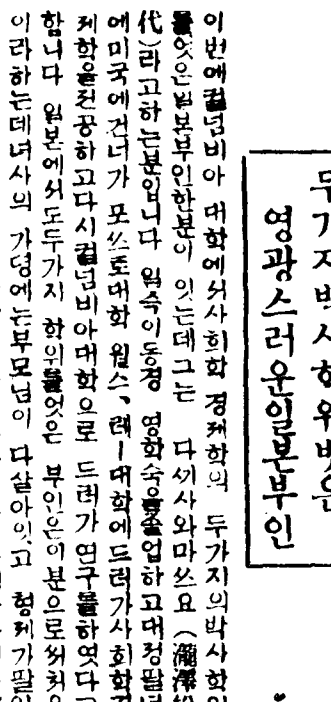 두가지박사학위받은
영광스러운일본부인
이번에컬넘비아 대학에서사회학 경제학의 두가지의박사학위
를엇은일본부인한분이 잇는데그는 다끼사와마쓰요 (瀧澤松
代)라고하는분입니다 일즉이동경 영화숙을졸업하고대정팔년
에미국에건너가 모쓰토대학 웰스, 레ー대학에드러가사회학경
제학을전공하고다시컬넘비아대학으로 드러가연구를하엿다고
함니다 일본에서도두가지 학위를엇은 부인은이분으로써처음
이라하는데녀사의 가뎡에는부모님이 다살아잇고 형제가팔인